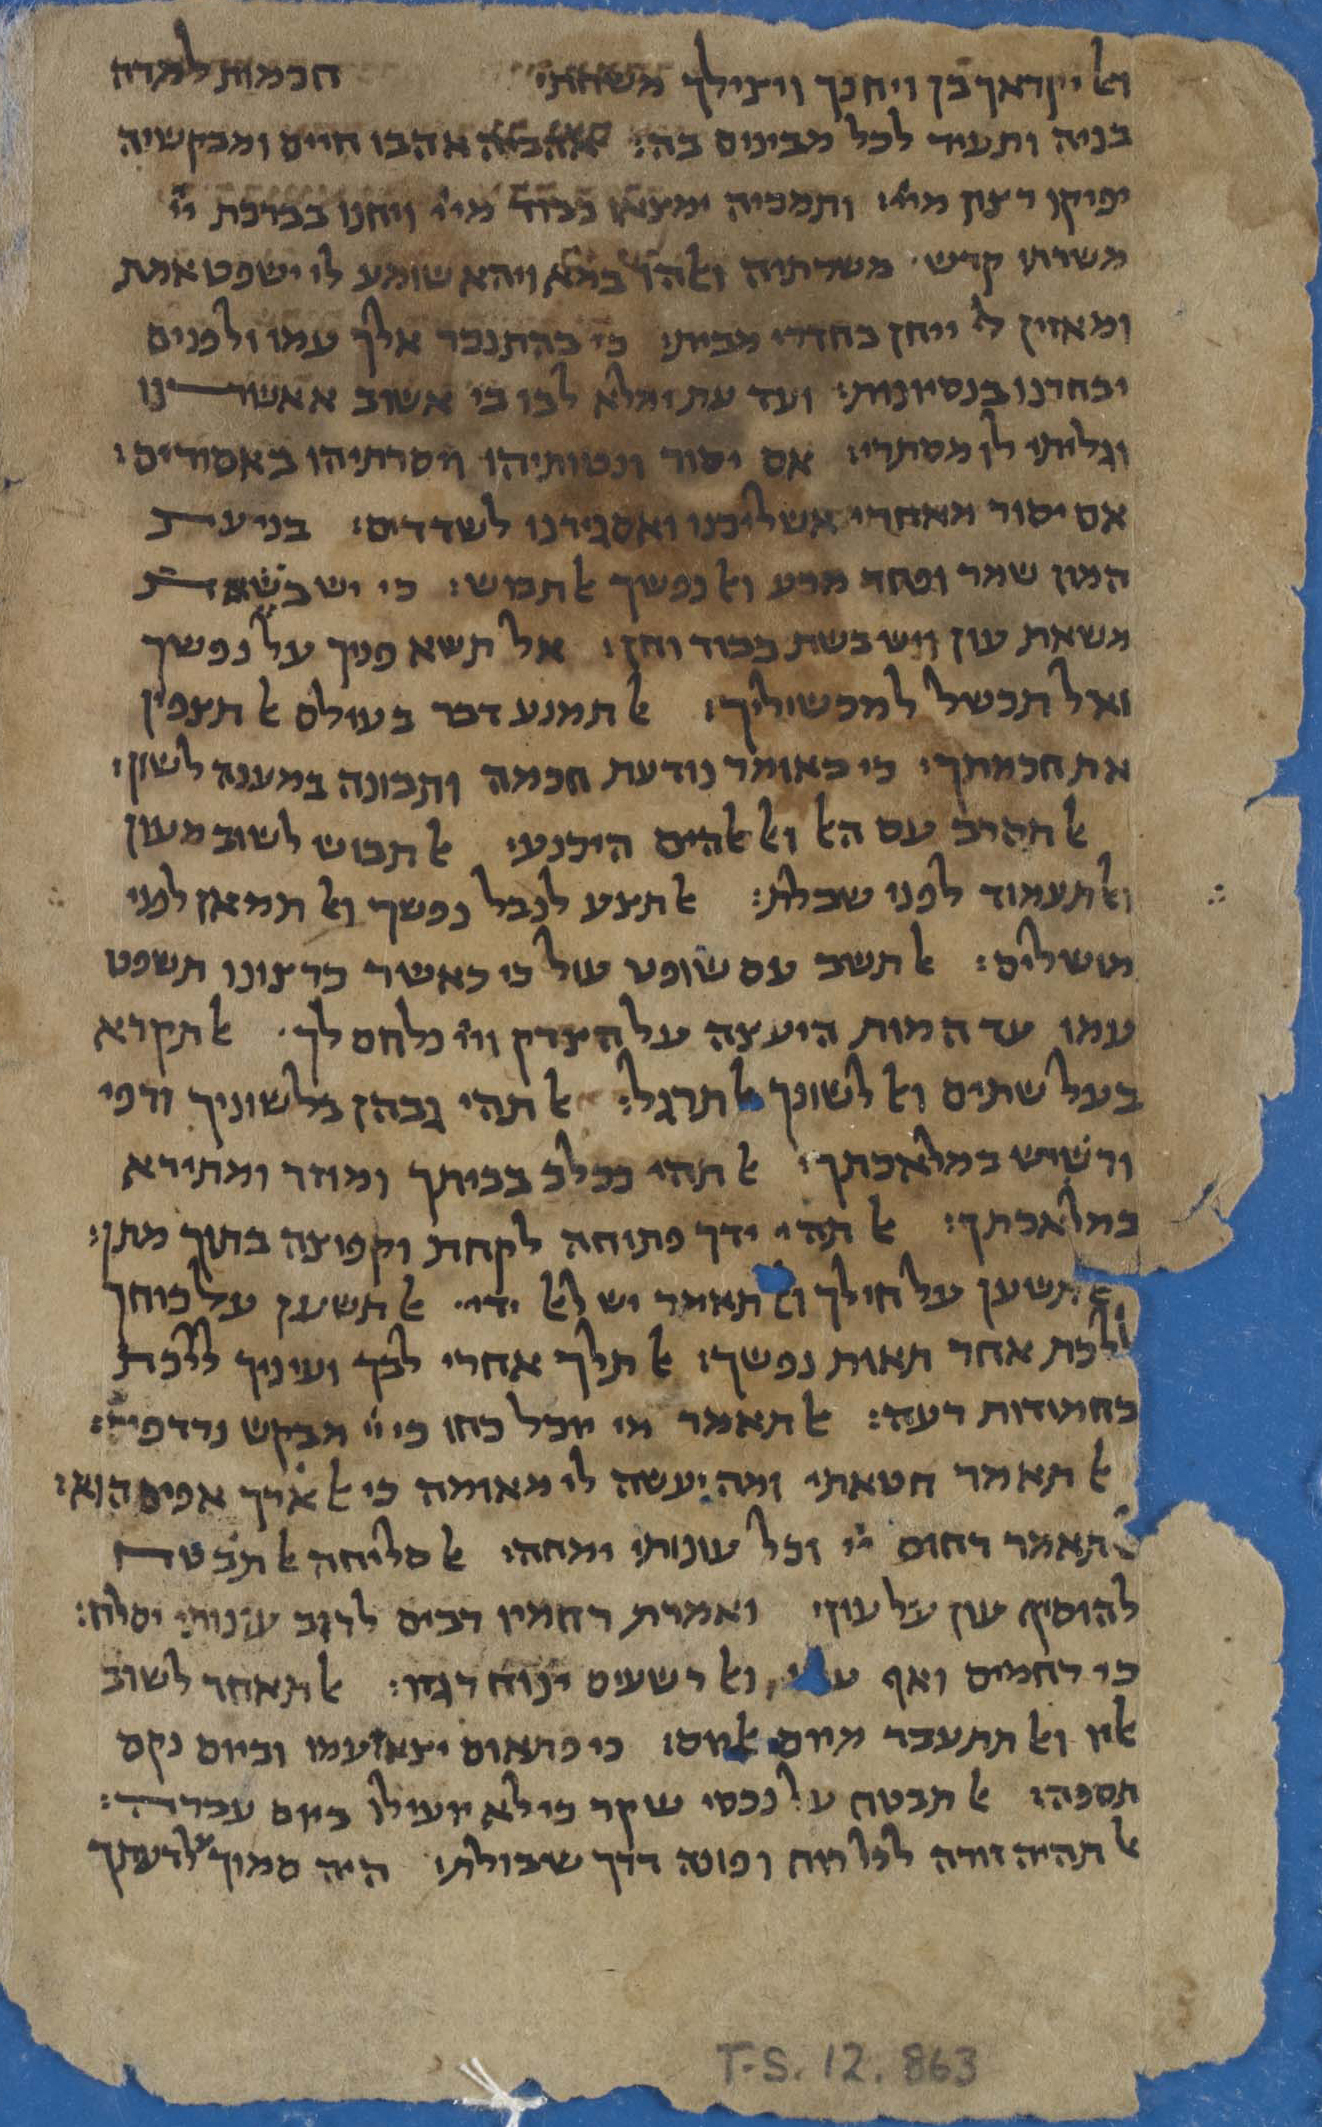 ולא ייקראך כן ויחנך ויצילך משחתי חכמות למדה
בניה ותעיד לכל מבינים בה: אהביה אהבו חיים ומבקשיה
יפיקו רצון מייי: ותמכיה ימצאו כבוד מייי ויחנו בברכת ייי
משרתי קדש משרתיה ואהו במא ויהא שומע לי ישפט אמת
ומאזין לי ייחן בחדרי מבית: כי בהתנכר אלך עמו ולפנים
יבחרנו בנסיונות: ועד עת ימלא לבו בי אשוב אאשרנו
וגליתי לו מסתרי: אם יסור ונטותיהו ויסרתיהו באסורים:
אם יסור מאחרי אשליכנו ואסגירנו לשדדים: בני עת
המון שמר ופחד מרע ואל נפשך אל תבוש: כי יש בשאת
משאת עון ויש בשת כבוד וחן: אל תשא פניך על נפשך
ואל תכשל למכשוליך: אל תמנע דבר בעולם אל תצפין
את חכמתך: כי באומר נודעת חכמה ותבונה במענה לשון:
אל תסרב עם האל ואל אלהים היכנע: אל תבוש לשוב מעון
ואל תעמוד לפני שבלת: אל תצע לנבל נפשך ואל תמאן לפני
מושלים: אל תשב עם שופט עול כי כאשר כרצונו תשפט
עמו עד המות היעצה על הצדק וייי נלחם לך: אל תקרא
בעל שתים ואל לשונך אל תרגל: אל תהי גבהן בלשוניך ורפי
ורשיש במלאכתך: אל תהי ככלב בביתך ומוזר ומתירא
במלאכתך: אל תהי ידך פתוחה לקחת וקפוצה בתוך מתן:
אל תשען על חילך ואל תאמר יש לאל ידי: אל תשען על כוחך
ללכת אחר תאות נפשך: אל תלך אחרי לבך ועיניך ללכת
בחמודות רעה: אל תאמר מי יוכל כחו כי ייי מבקש נרדפים:
אל תאמר חטאתי ומה יעשה לי מאומה כי אל ארך אפים הוא:
אל תאמר רחום ייי וכל עונותי ימחה: אל סליחה אל תבטח
להוסיף עון על עון: ואמרת רחמיו רבים לרוב עונותי יסלח:
כי רחמים ואף עמו ואל רשעים ינוח רגזו: אל תאחר לשוב
אליו ואל תתעבר מיום אל יום: כי פתאום יצא זעמו וביום נקם
תספה: אל תבטח על נכסי שקר כי לא יועילו ביום עברה:
אל תהיה זורה לכל רוח ופונה דרך שבולת: היה סמוך על דעתך
T-S. 12. 863